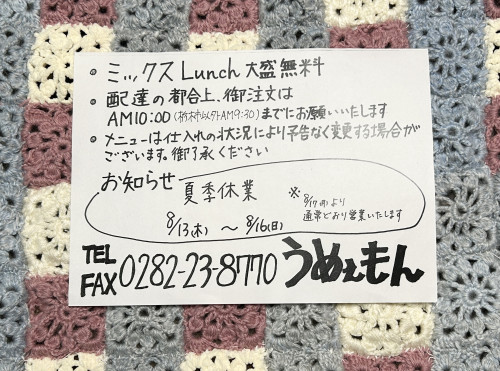 • ミックスLunch 大盛無料
• 配達の都合上、御注文は
AM10:00(栃木市以外AM9:30)までにお願いいたします
• メニューは仕入れの状況により予告なく変更する場合が
ございます。御了承ください
お知らせ
夏季休業
8/13(木) 〜 8/16(日)
※ 8/17(月)より
通常どおり営業いたします
TEL
FAX 0282-23-8770 うめぇもん